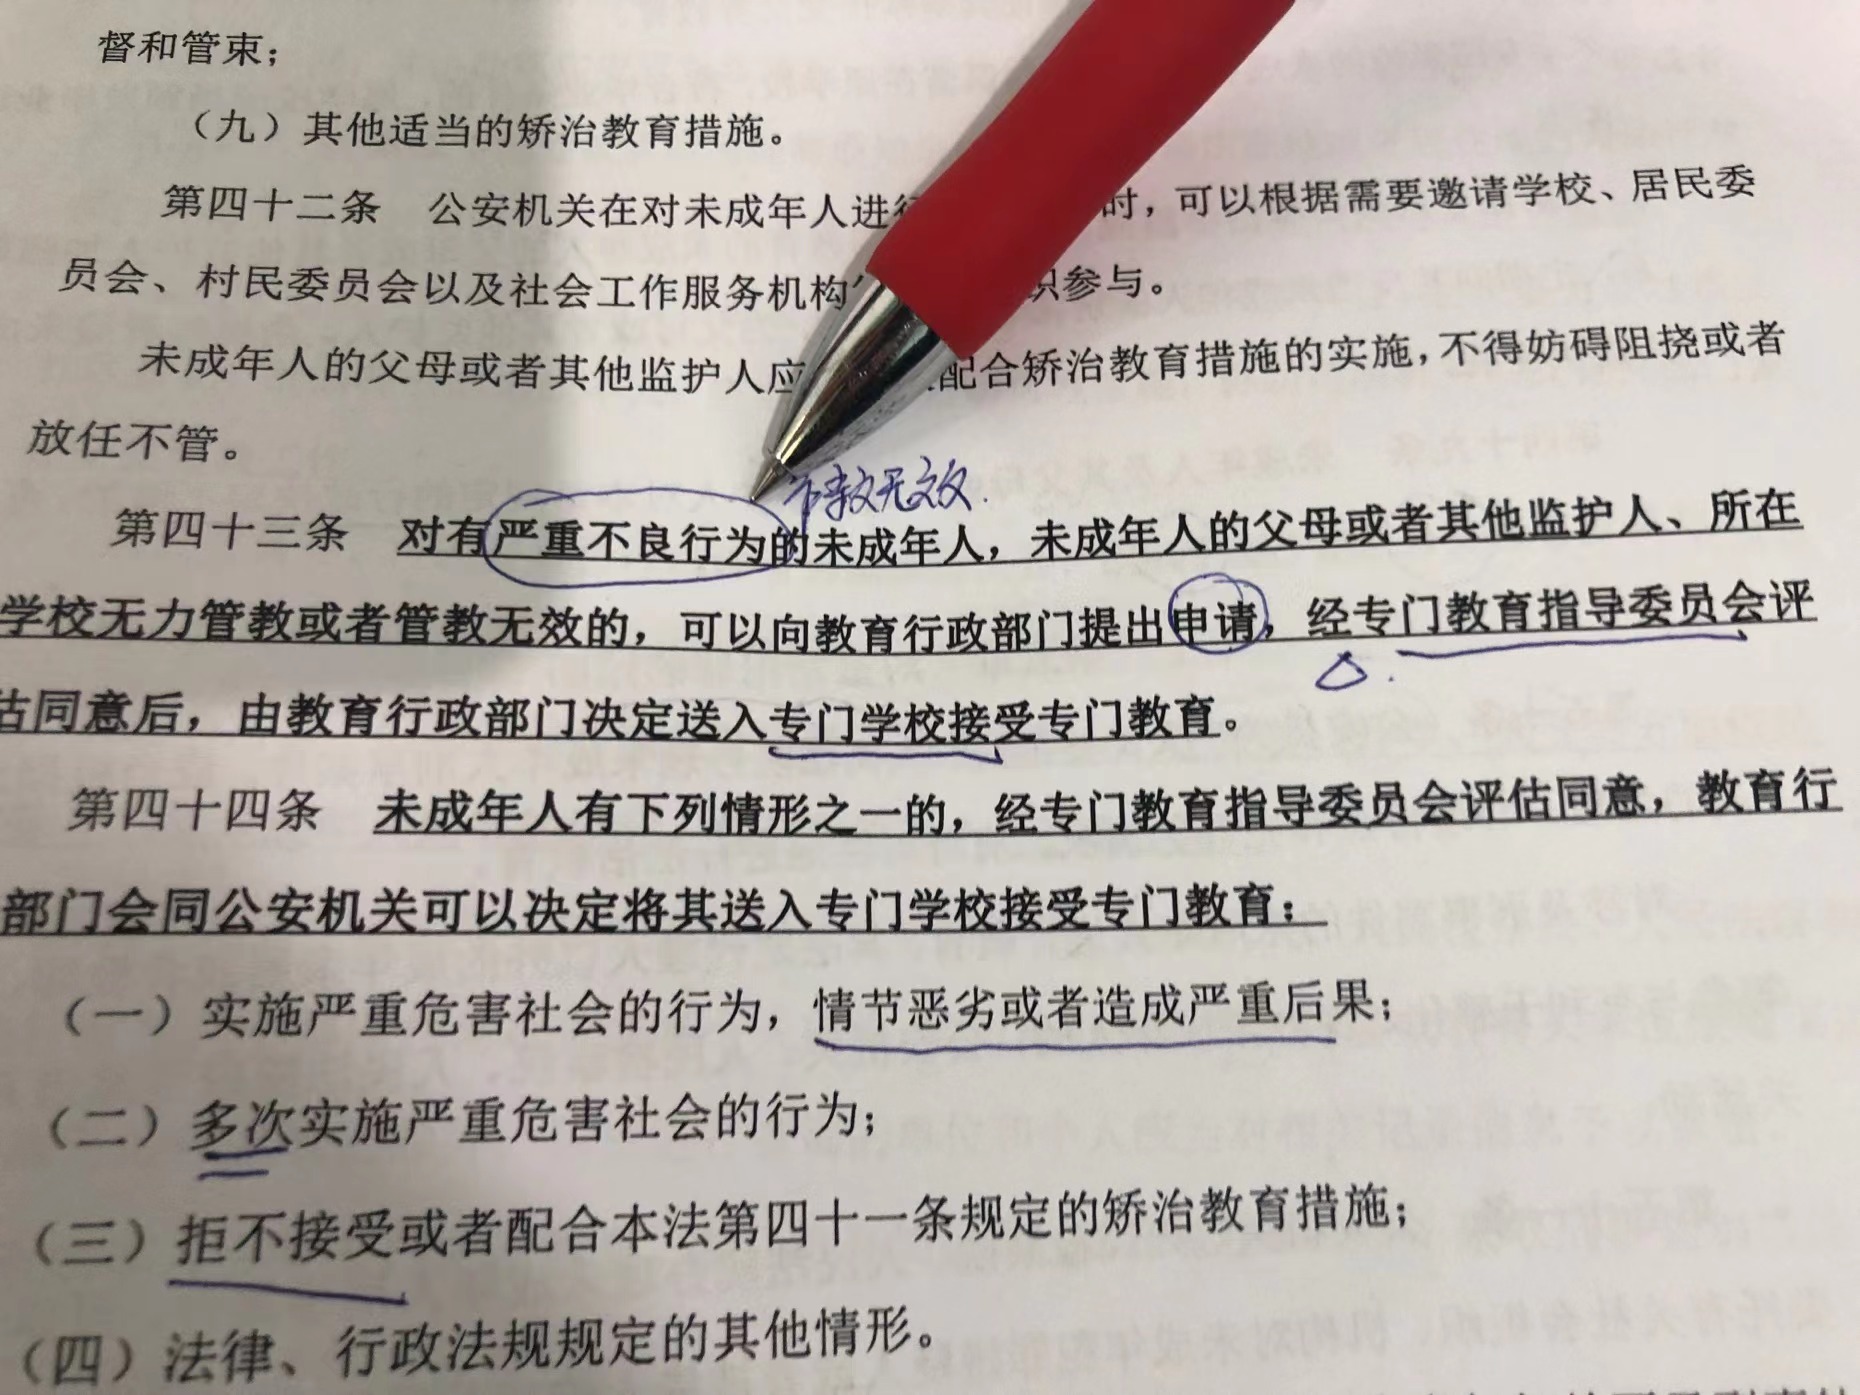 督和管束；
（九）其他适当的矫治教育措施。
第四十二条 公安机关在对未成年人进行 时，可以根据需要邀请学校、居民委
员会、村民委员会以及社会工作服务机构 织参与。
未成年人的父母或者其他监护人应 配合矫治教育措施的实施，不得妨碍阻挠或者
放任不管。
教无效.
第四十三条 对有严重不良行为的未成年人，未成年人的父母或者其他监护人、所在
学校无力管教或者管教无效的，可以向教育行政部门提出申请，经专门教育指导委员会评
估同意后，由教育行政部门决定送入专门学校接受专门教育。
第四十四条 未成年人有下列情形之一的，经专门教育指导委员会评估同意，教育行
部门会同公安机关可以决定将其送入专门学校接受专门教育：
（一）实施严重危害社会的行为，情节恶劣或者造成严重后果；
（二）多次实施严重危害社会的行为；
（三）拒不接受或者配合本法第四十一条规定的矫治教育措施；
（四）法律、行政法规规定的其他情形。